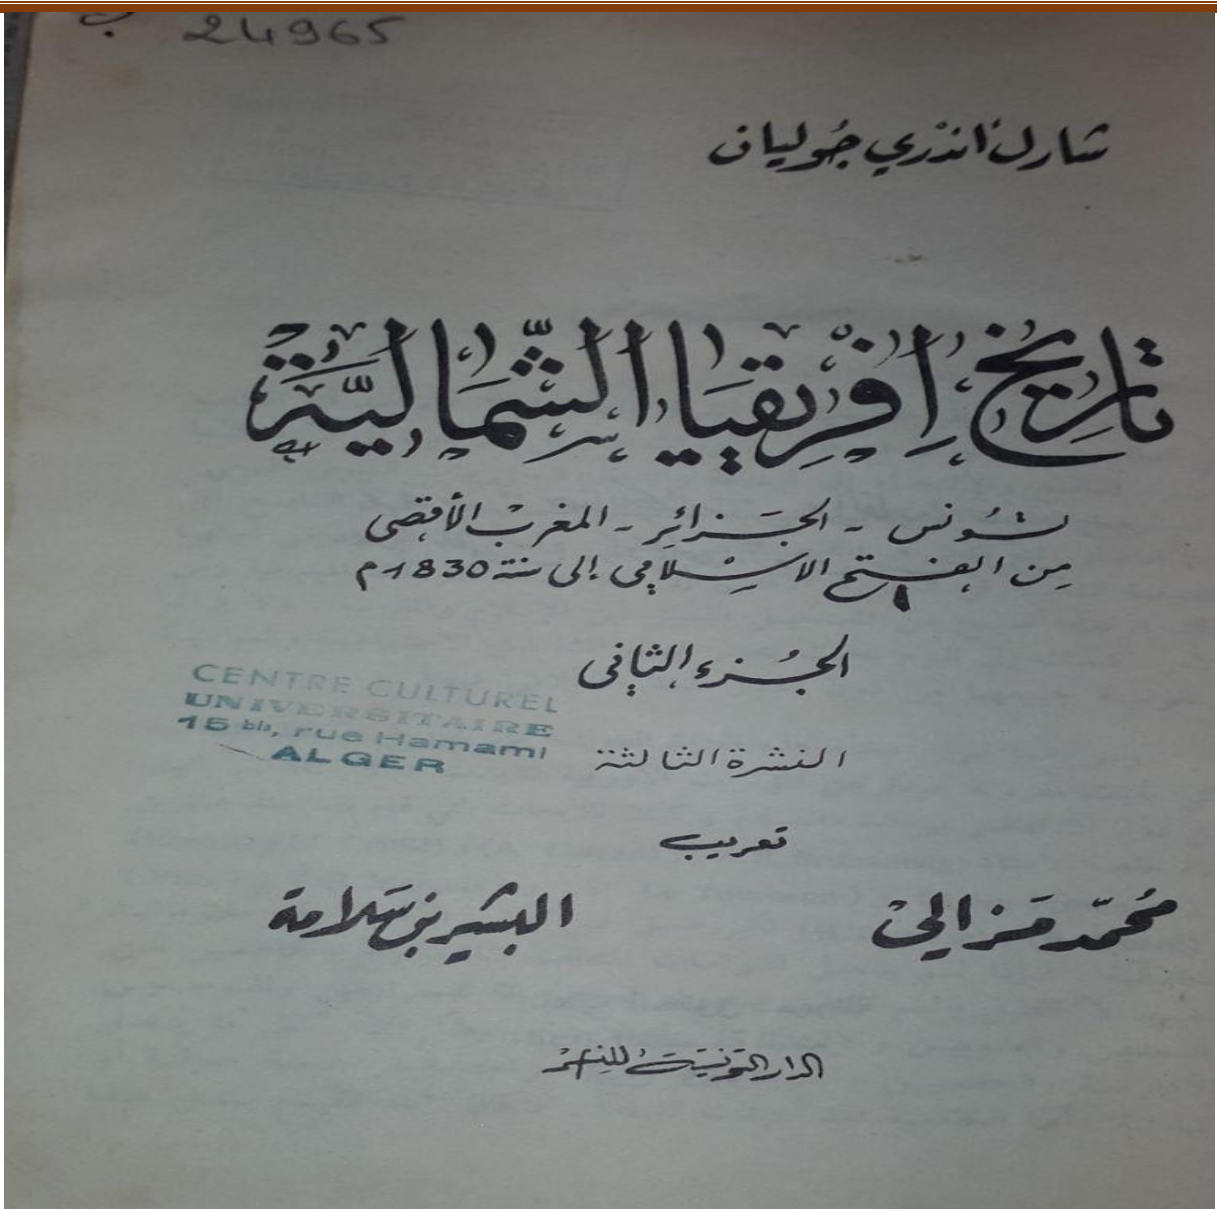 24965
شارل اندري جوليان
تاريخ إفريقيا الشمالية
تونس - الجزائر - المغرب الأقصى
من الفتح الاسلامي إلى سنة 1830م
الجزء الثاني
CENTRE CULTUREL
UNIVERSITAIRE
15 bis, rue Hamami
ALGER
النشرة الثالثة
تعريب
محمّد مزالي
البشير بن سلامة
الدار التونسية للنشر